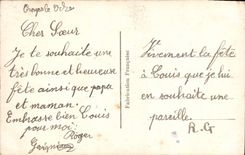 Cher Sœur
Je te souhaite une
très bonne et heureuse
fête ainsi que papa
et maman.
Embrasse bien Louis
pour moi
Roger
Fabrication Française
Vivement la fête
à Louis que je lui
en souhaite une
pareille.
R. G